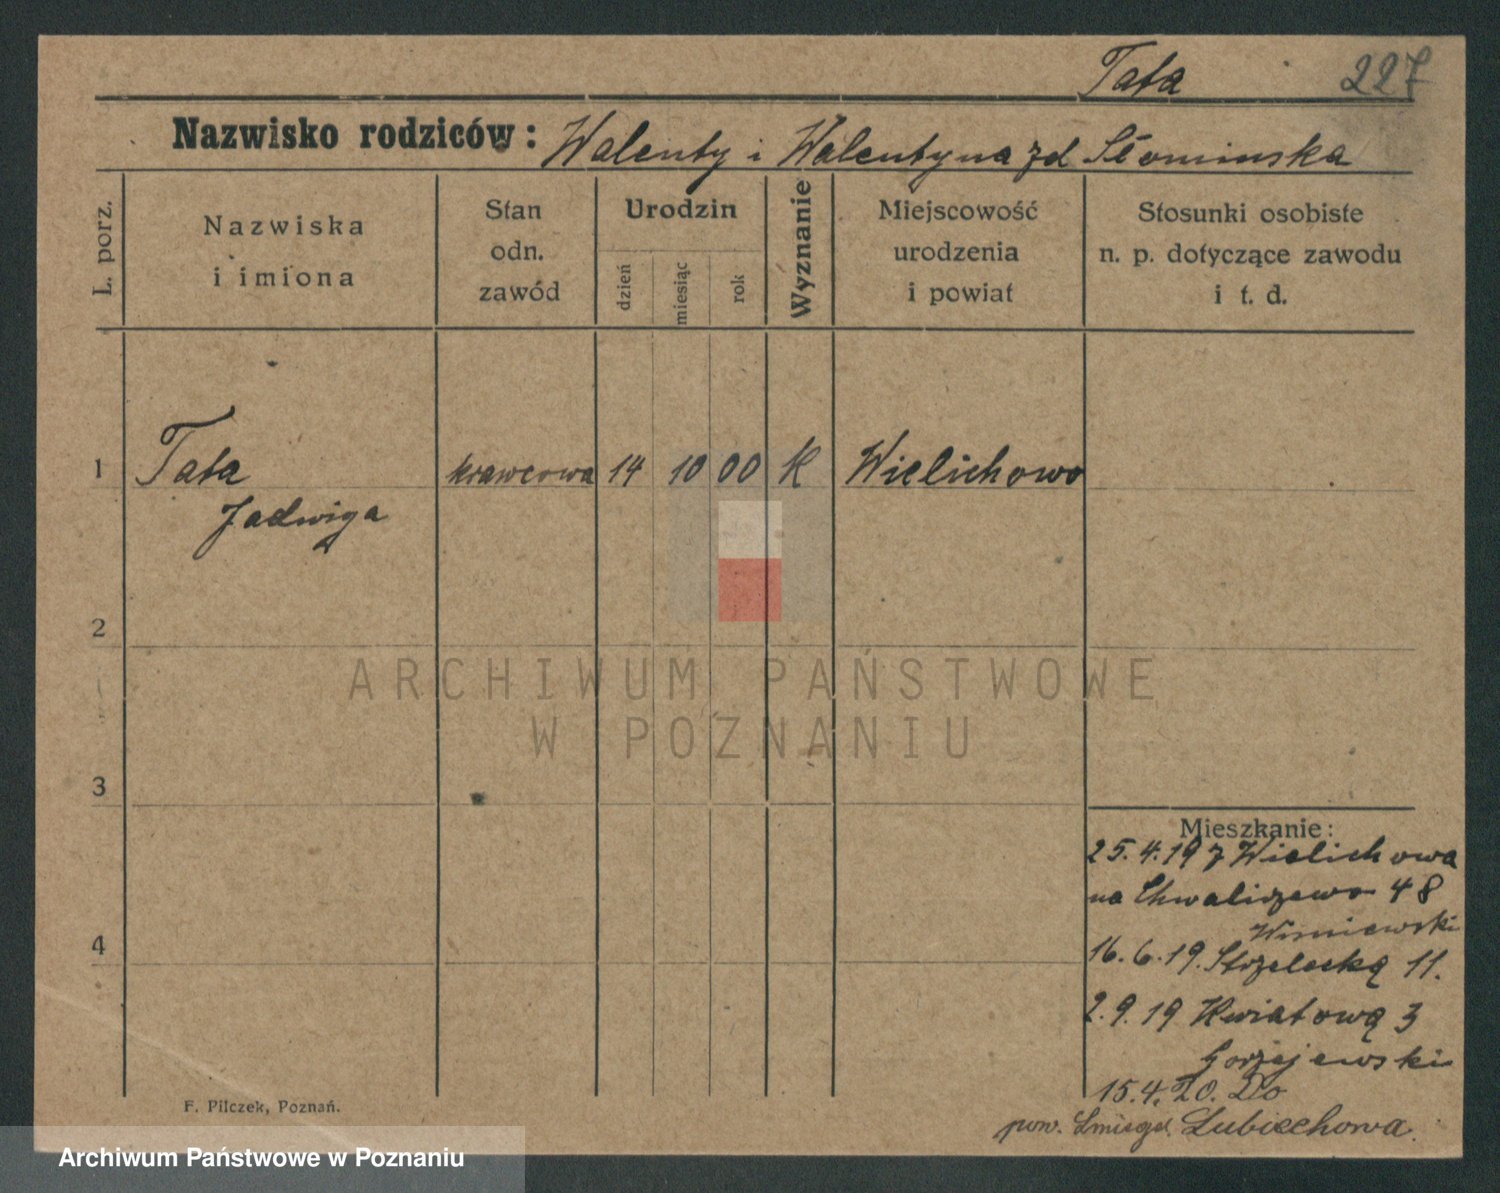 Tata 227
Nazwisko rodziców: Walenty i Walentyna zd Słominska
L. porz.
Nazwiska
i imiona
Stan
odn.
zawód
Urodzin
dzień
miesiąc
rok
Wyznanie
Miejscowość
urodzenia
i powiat
Stosunki osobiste
n. p. dotyczące zawodu
i t. d.
1 Tata krawcowa 14 10 00 K Wielichowo
Jadwiga
2
ARCHIWUM PAŃSTWOWE
W POZNANIU
3
Mieszkanie:
25.4.19 z Wielichowa
na Chwaliszewo 48
Wisniewski
4
16.6.19. Strzelecką 11.
2.9.19 Kwiatową 3
Gorzejewski
15.4.20. Do
pow. Smigel. Lubiechowa.
F. Pilczek, Poznań.
Archiwum Państwowe w Poznaniu